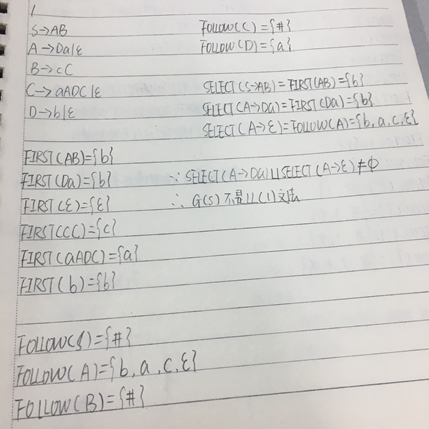 1
S→AB
A→Da|ε
B→cC
C→aADC|ε
D→b|ε
FIRST(AB)={b}
FIRST(Da)={b}
FIRST(ε)={ε}
FIRST(cC)={c}
FIRST(aADC)={a}
FIRST(b)={b}
FOLLOW(S)={#}
FOLLOW(A)={b,a,c,ε}
FOLLOW(B)={#}
FOLLOW(C)={#}
FOLLOW(D)={a}
SELECT(S→AB)=FIRST(AB)={b}
SELECT(A→Da)=FIRST(Da)={b}
SELECT(A→ε)=FOLLOW(A)={b,a,c,ε}
∵ SELECT(A→Da)∪SELECT(A→ε)≠Φ
∴ G(S)不是LL(1)文法